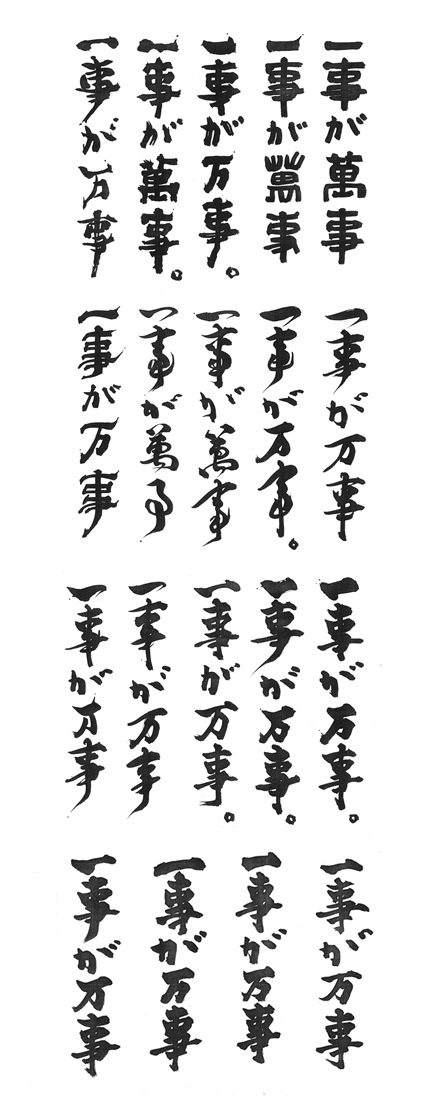 一事が萬事
一事が萬事
一事が万事。
一事が萬事。
一事が万事
一事が万事
一事が万事。
一事が萬事
一事が萬事
一事が万事
一事が万事。
一事が万事。
一事が万事。
一事が万事
一事が万事
一事が万事
一事が万事
一事が万事
一事が万事